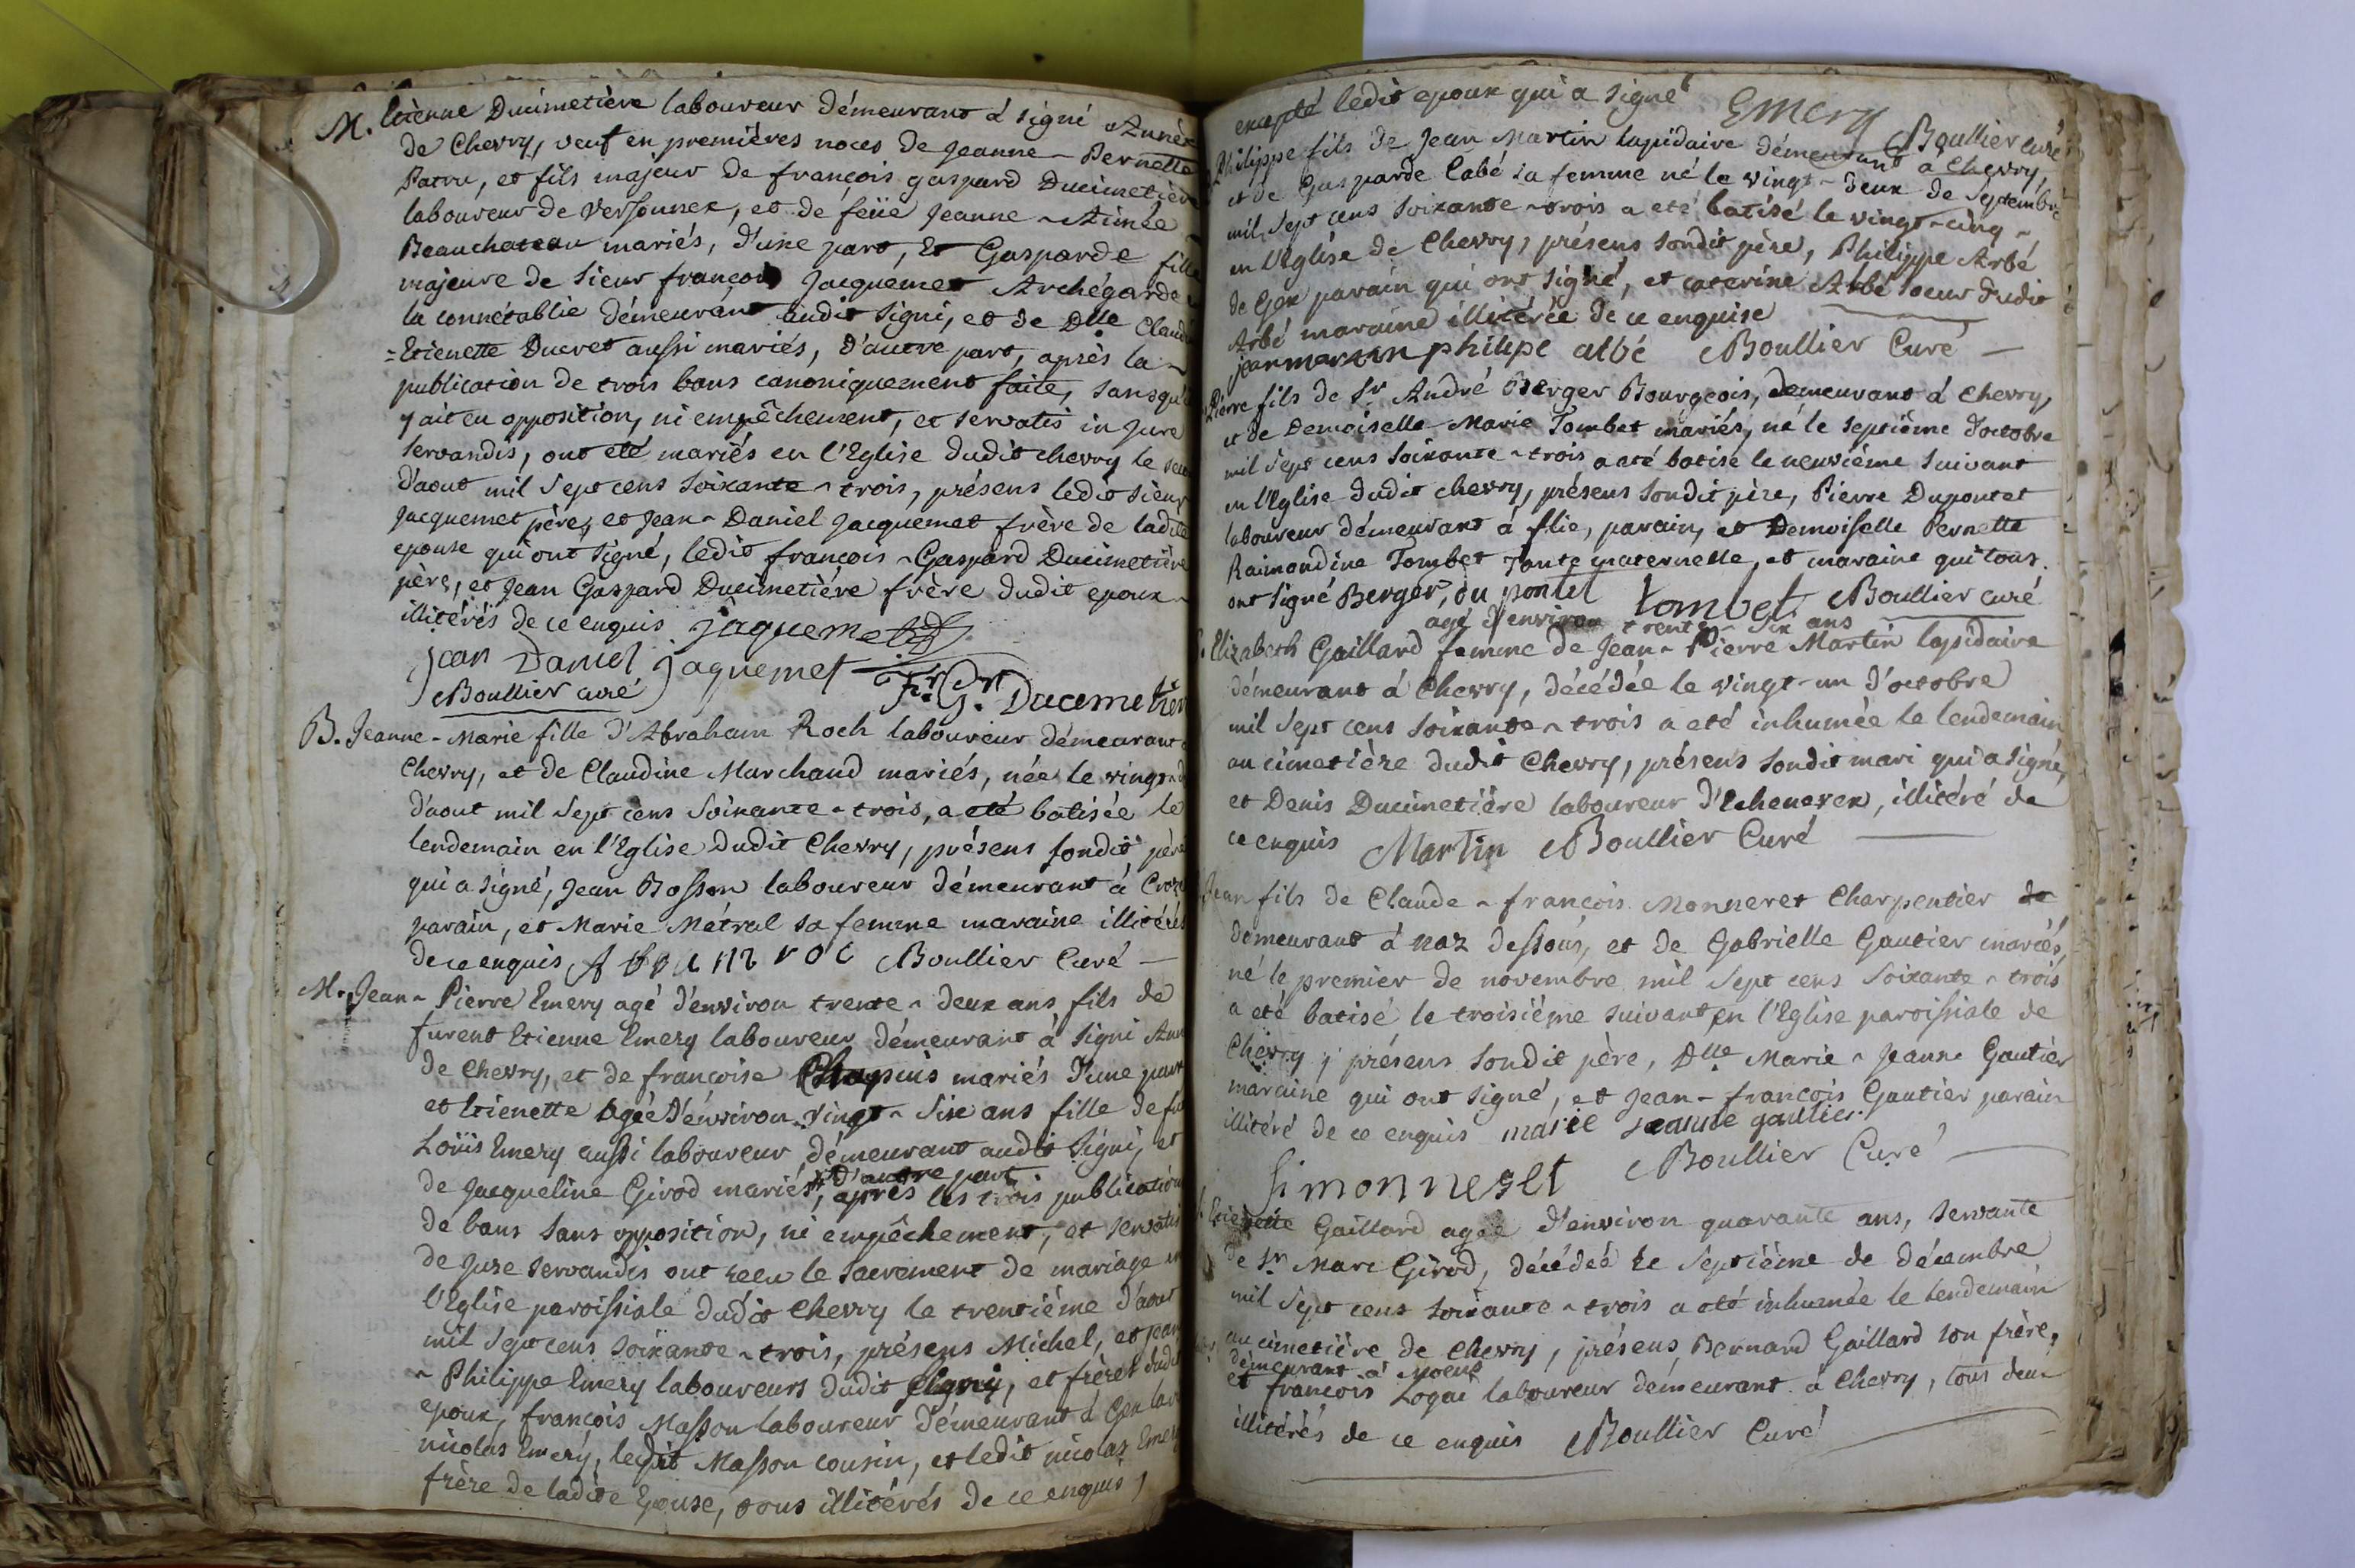 M. Etienne Ducimetière laboureur démeurant à Signi Annèx
de Chevry, veuf en premières noces de Jeanne ~ Pernette
Patru, et fils majeur de françois gaspard Ducimetière
laboureur de Versonnex, et de feüe Jeanne ~ Aimée
Beauchateau mariés, d'une part, Et Gasparde fille
majeure de Sieur françois Jacquemet Archégarde
la connétablie démeurant audit Signi, et de Dlle Claud
= Etienette Ducret aussi mariés, d'autre part, après la ~
publication de trois bans canoniquement faite, sans qu'il
y ait eu opposition, ni empêchement, et servatis in jure
servandis, ont eté mariés en l'Eglise dudit chevry le
d'aout mil Sept cens Soixante ~ trois, présens ledit Sieur
Jacquemet père, et Jean ~ Daniel Jacquemet frère de ladite
epouse qui ont signé, ledit françois ~ Gaspard Ducimetière
père, et Jean Gaspard Ducimetière frère dudit epoux ~
illitérés de ce enquis jaquemet
jean Daniel jaquemet
Boullier curé F. G. Ducimetier
B. Jeanne ~ Marie fille d'Abraham Roch laboureur démeurant à
Chevry, et de Claudine Marchand mariés, née le vingt
d'aout mil Sept cens Soixante ~ trois, a eté batisée le
lendemain en l'Eglise dudit Chevry, présens sondit père
qui a signé, Jean Bosson laboureur démeurant à Croze
parain, et Marie Métral sa femme maraine illitérés
de ce enquis Boullier Curé
M. Jean ~ Pierre Emery agé d'environ trente ~ deux ans fils de
furent Etienne Emery laboureur démeurant à Signi Ann
de Chevry, et de françoise Chapuis mariés d'une part
et Etienette agée d'environ vingt ~ Six ans fille de feu
Loüis Emery aussi laboureur démeurant audit Signi, et
de Jacqueline Girod mariés, d'autre part, après les trois publications
de bans sans opposition, ni empêchement, et servatis
de jure servandis ont reçu le Sacrement de mariage en
l'Eglise paroissiale dudit Chevry le trentième d'aout
mil Sept cens Soixante ~ trois, présens Michel, et jean
~ Philippe Emery laboureurs dudit Signi, et frères dudit
epoux, françois Masson laboureur démeurant à
nicolas Emery, ledit Masson cousin, et ledit nicolas Emery
frère de ladite Epouse, tous illitérés de ce enquis,
excepté ledit epoux qui a signé Emery
Boullier curé
Philippe fils de Jean Martin lapidaire démeurant à Chevry,
et de Gasparde Labé sa femme né le vingt ~ deux de Septembre
mil Sept cens Soixante ~ trois a eté batisé le vingt ~ cinq ~
en l'Eglise de Chevry, présens sondit père, Philippe Arbé
de Gex parain qui ont signé, et caterine Arbé soeur dudit
Arbé maraine illitérée de ce enquise
jean martin philipe albé Boullier Curé
Pierre fils de Sr André Berger Bourgeois, demeurant à Chevry,
et de Demoiselle Marie Tombet mariés, né le septième d'octobre
mil Sept cens Soixante ~ trois a eté batisé le neuvième suivant
en l'Eglise dudit chevry, présens sondit père, Pierre Dupontet
laboureur démeurant à flie, parain, et Demoiselle Pernette
Raimondine Tombet Tante maternelle, et maraine qui tous
ont signé Berger, du pontet tombet Boullier curé
agé d'environ trente ~ Six ans
Elizabeth Gaillard femme de Jean ~ Pierre Martin lapidaire
démeurant à Chevry, décédée le vingt ~ un d'octobre
mil Sept cens Soixante ~ trois a eté inhumée le lendemain
au cimetière dudit Chevry, présens sondit mari qui a signé,
et Denis Ducimetière laboureur d'Echenevex, illitéré de
ce enquis Martin Boullier Curé
Jean fils de Claude ~ françois Monneret Charpentier de
demeurant à naz dessous, et de Gabrielle Gautier mariés,
né le premier de novembre mil Sept cens Soixante ~ trois
a eté batisé le troisième suivant en l'Eglise paroissiale de
Chevry, présens sondit père, Dlle Marie ~ Jeanne Gautier
maraine qui ont signé, et Jean ~ françois Gautier parain
illitéré de ce enquis marie jeanne gautier
Boullier Curé
Etienette Gaillard agée d'environ quarante ans, servante
de Sr Marc Girod, décédée le septième de décembre
mil Sept cens Soixante ~ trois a eté inhumée le lendemain
au cimetière de Chevry, présens Bernard Gaillard son frère,
démeurant à Moens
et francois Logat laboureur démeurant à Chevry, tous deux
illitérés de ce enquis Boullier Curé